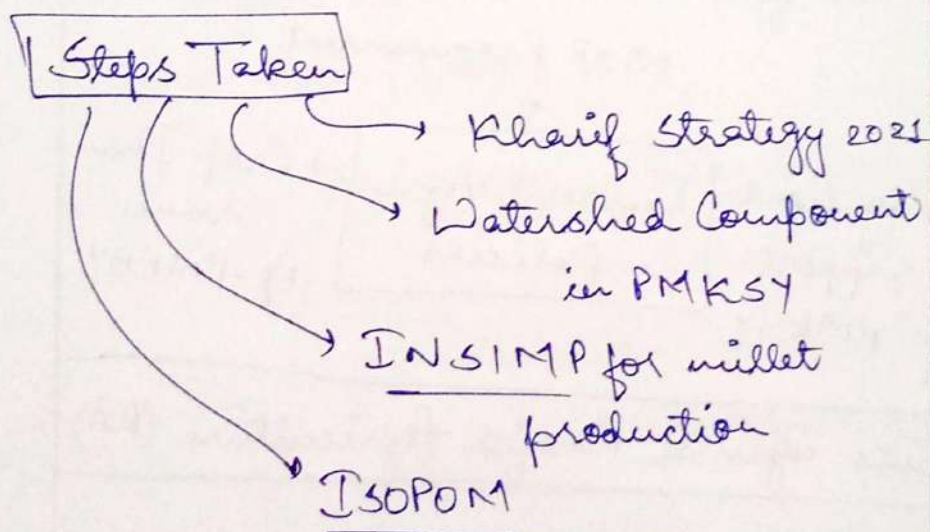 Steps Taken
Kharif Strategy 2021
Watershed Component
in PMKSY
INSIMP for millet
production
ISOPOM